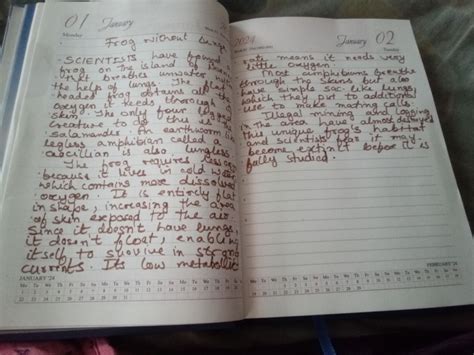 01 January
Monday
Frog without lungs
SCIENTISTS have found a
frog on the island of
that breathes underwater without
the help of lungs. The flat
headed frog obtains all the
oxygen it needs through its
skin. The only four legged
creature to do this is a
salamander. An earthworm like
legless amphibian called a
cacilian is also lungless.
The frog requires less oxygen
because it lives in cold water
which contains more dissolved
oxygen. It is entirely flat
in shape, increasing the area
of skin exposed to the air.
Since it doesn't have lungs,
it doesn't float, enabling
itself to survive in strong
currents. Its low metabolic
JANUARY '24
2024 January 02
Tuesday
rate means it needs very
little oxygen.
Most amphibians breathe
through the skins but also
have simple sac like lungs,
which they put to additional
use to make mating calls.
Illegal mining and logging
in the area have almost destroyed
this unique frog's habitat
and scientists fear it may
become extinct before it is
fully studied.
FEBRUARY '24